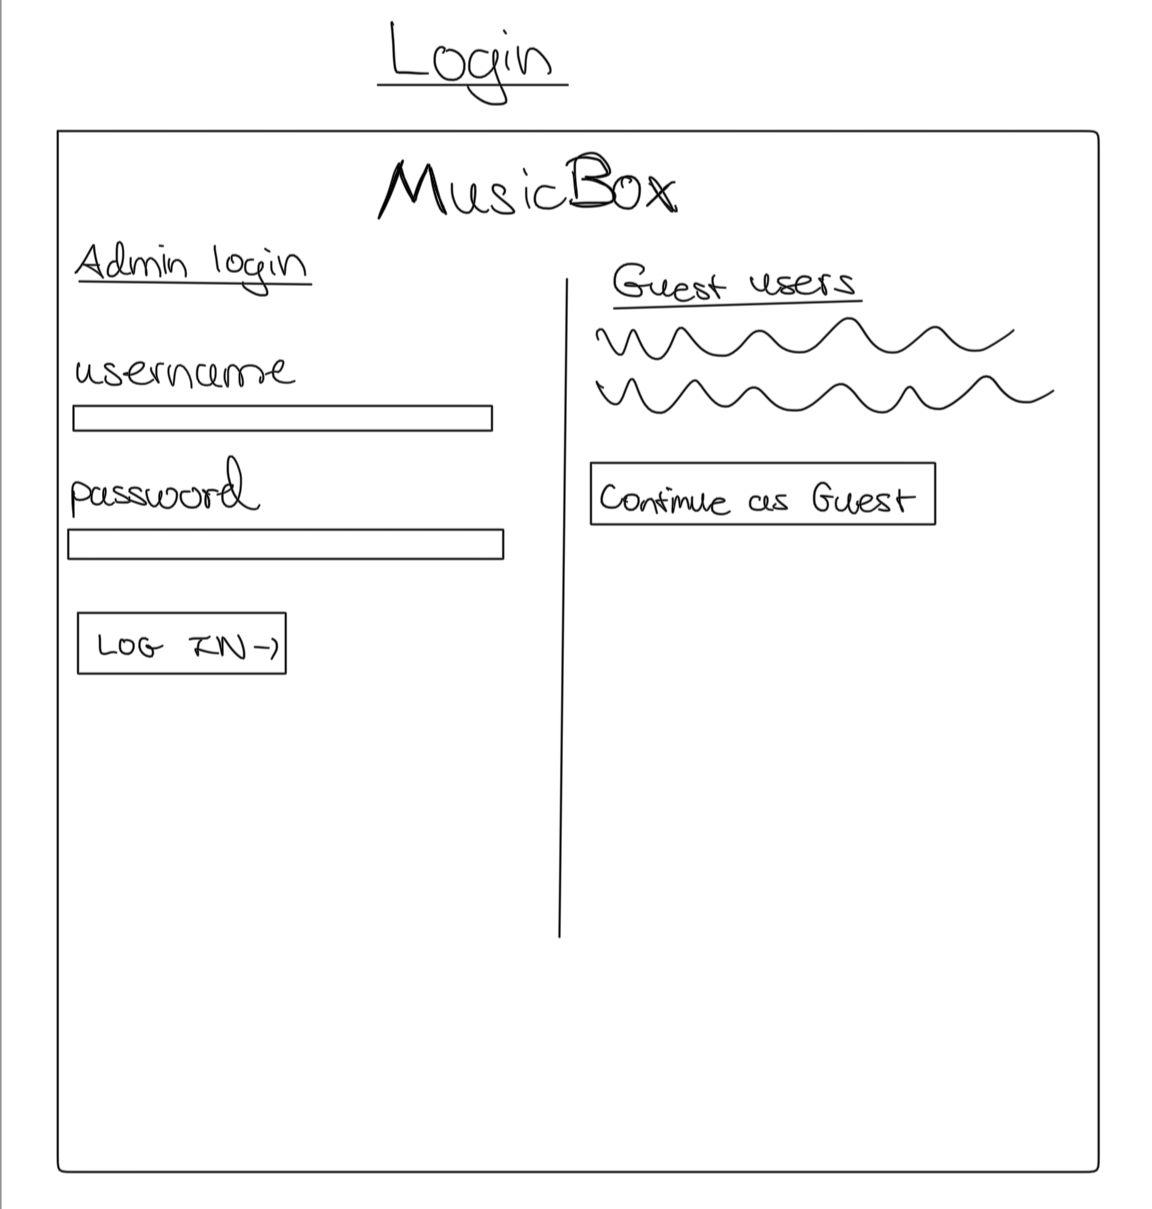 Login
MusicBox
Admin login
username
password
LOG IN →
Guest users
Continue as Guest